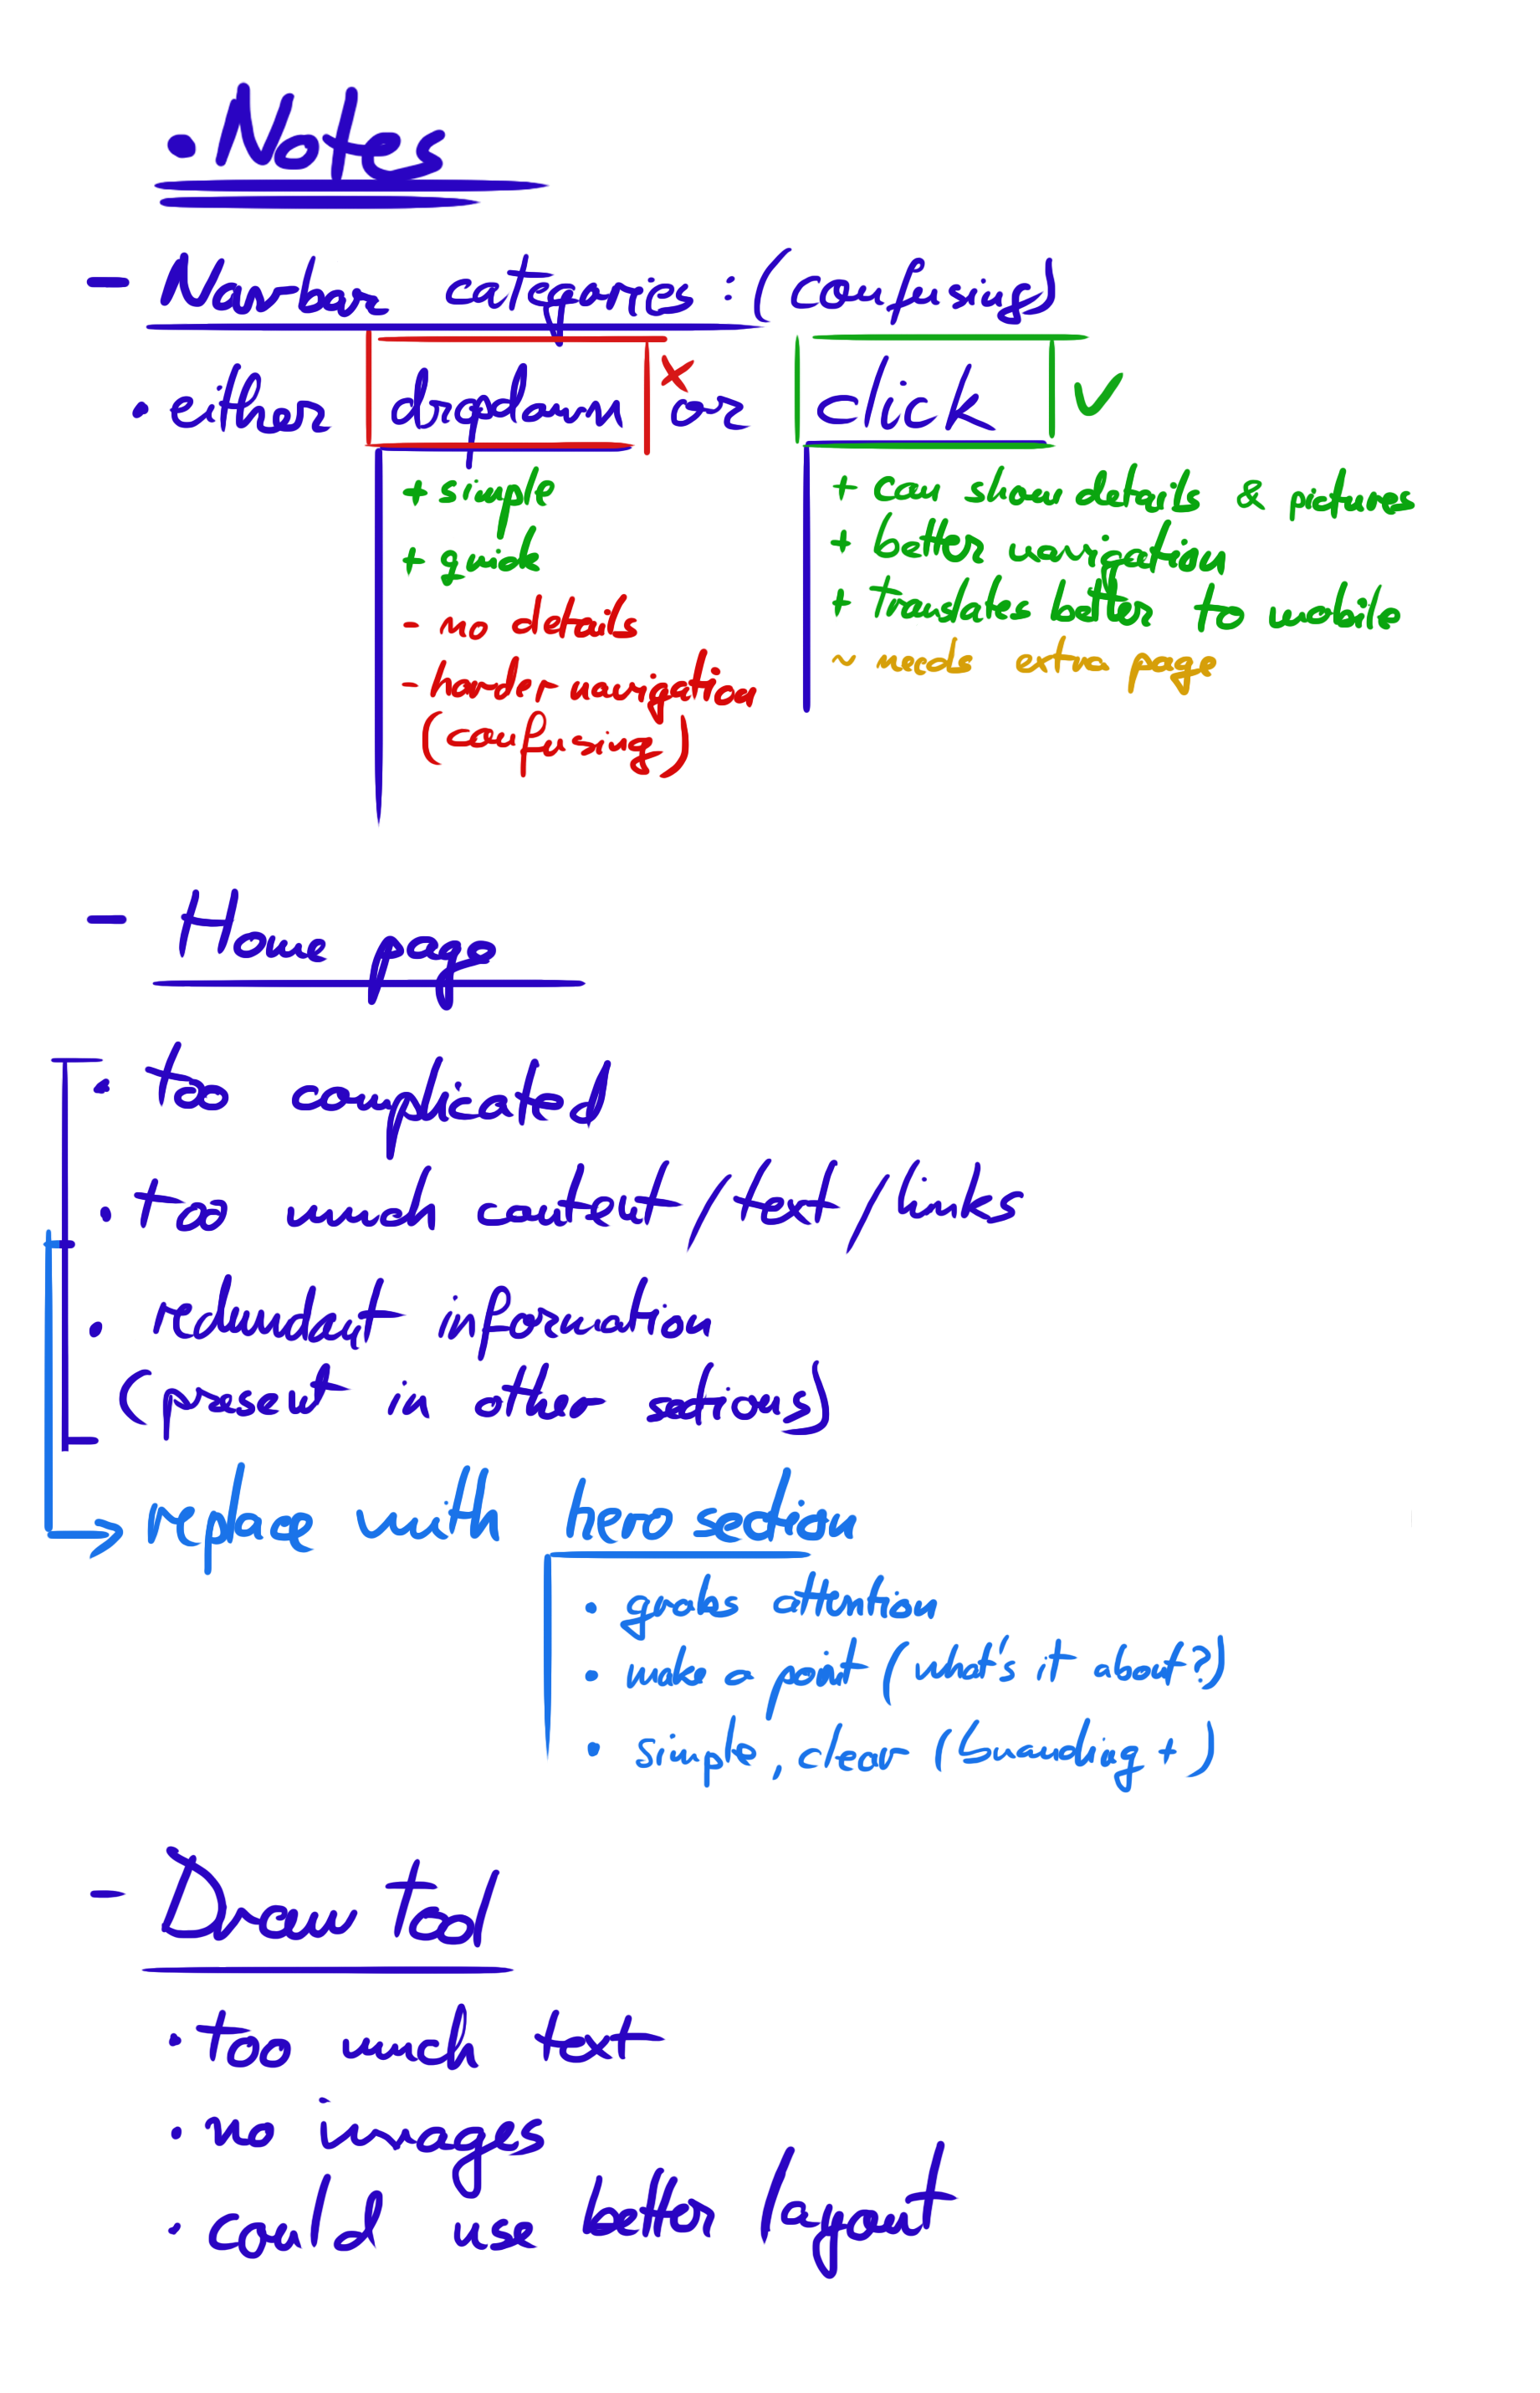 • Notes
- Nav-bar categories : (confusing)
• either dropdown x or click ✓
+ simple
+ quick
- no details
- harder navigation
(confusing)
+ can show details & pictures
+ better navigation
+ translates better to mobile
~ needs extra page
- Home page
• too complicated
• too much content/text/links
• redundant information
(present in other sections)
→ replace with hero section
• grabs attention
• make a point (what's it about?)
• simple, clear (branding +)
- Draw tool
• too much text
• no images
• could use better layout